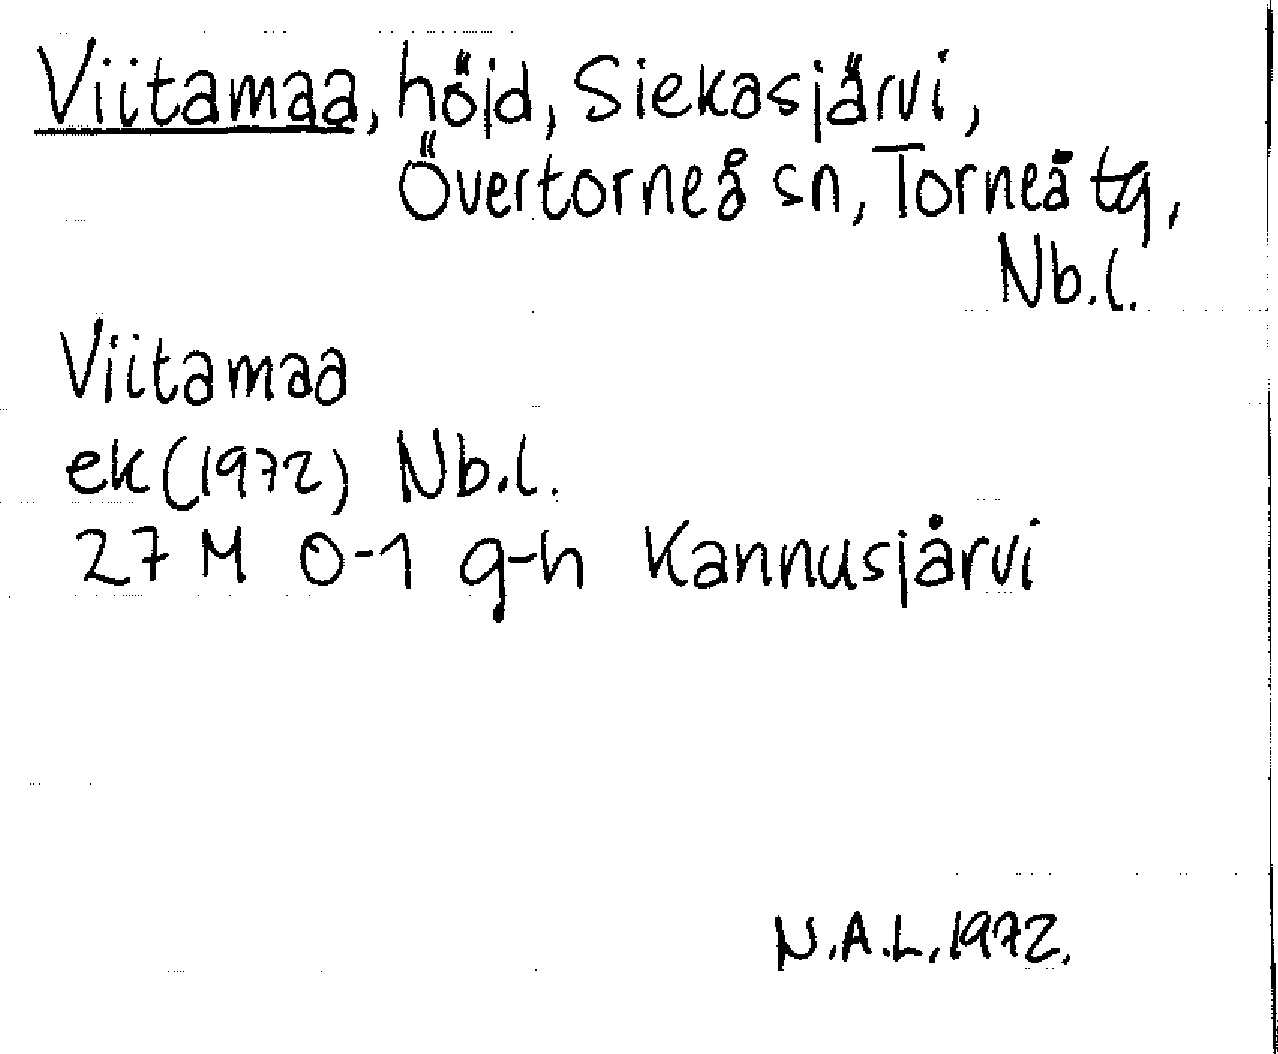 Viitamaa, höjd, Siekasjärvi,
Övertorneå sn, Torneå tg,
Nb.l.
Viitamaa
ek (1972) Nb.l.
27 M 0-1 g-h Kannusjärvi
N.A.L. 1972.